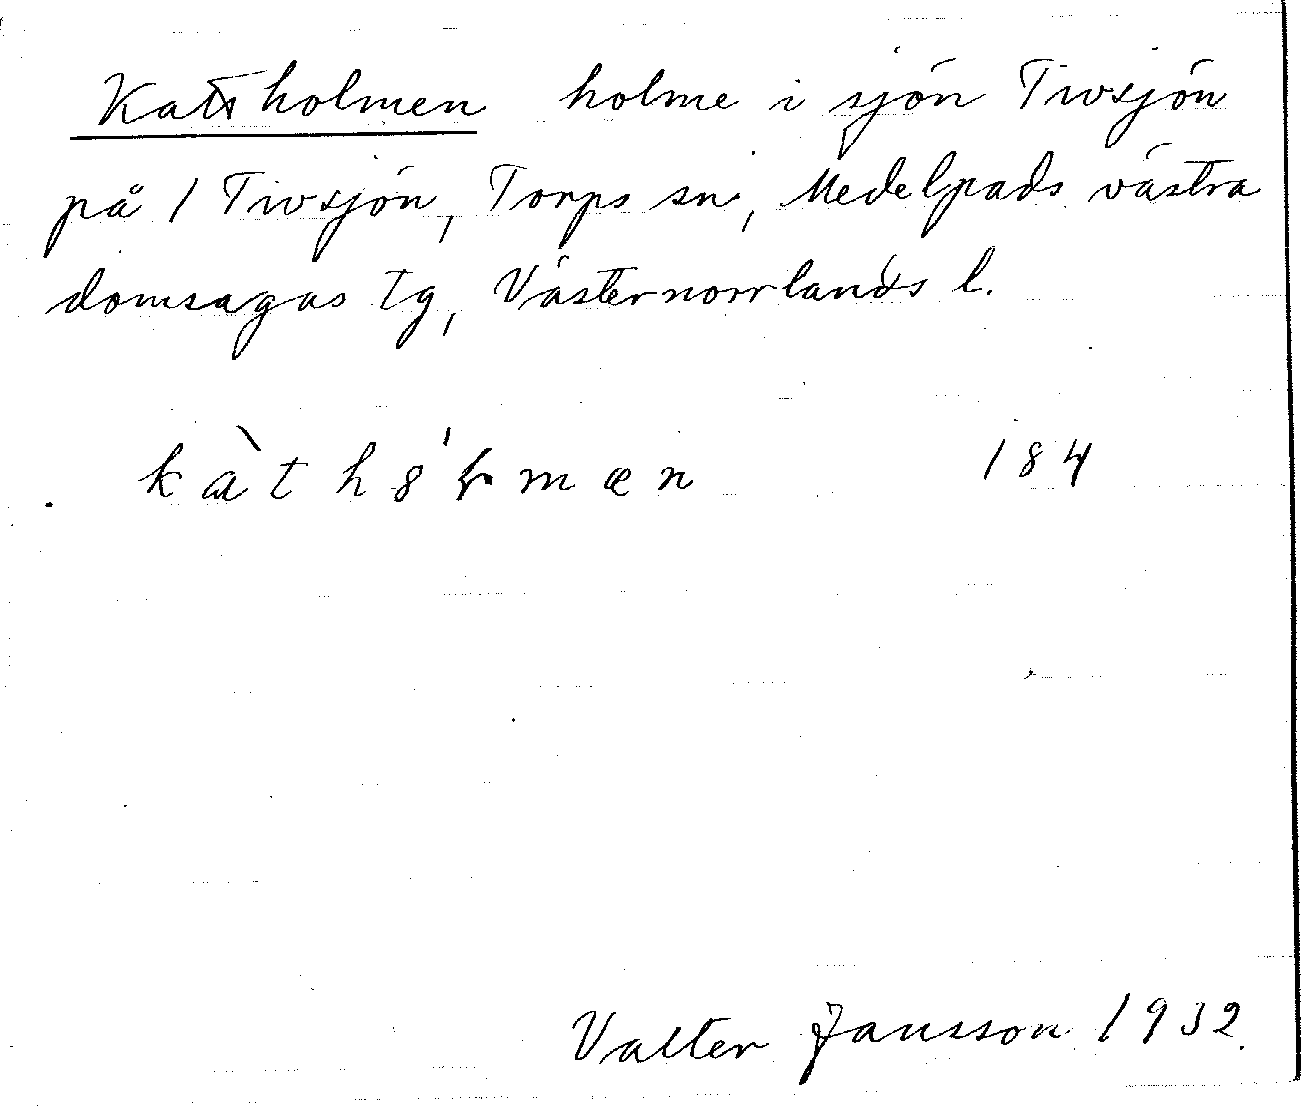 Kattholmen holme i sjön Tivsjön
på 1 Tivsjön, Torps sn, Medelpads västra
domsagas tg, Västernorrlands l.
kàthɞ'ɽmæn 184
Valter Jansson 1932.